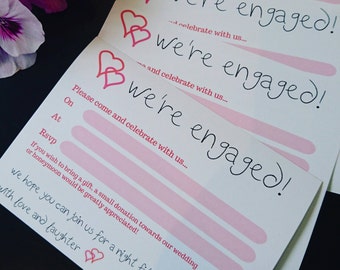 we're engaged!
and celebrate with us...
we're engaged!
and celebrate with us...
we're engaged!
Please come and celebrate with us...
On
At
Rsvp
If you wish to bring a gift, a small donation towards our wedding
or honeymoon would be greatly appreciated!
we hope you can join us for a night
with love and laughter